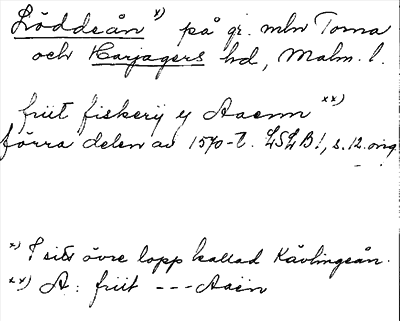 Löddeån x) på gr. mln Torna
och Harjagers hd, Malm. l.
friit fiskerij y Aaenn xx)
förra delen av 1570-t. LSLB 1, s. 12. orig.
x) I sitt övre lopp kallad Kävlingeån.
xx) A: friit --- Aaen